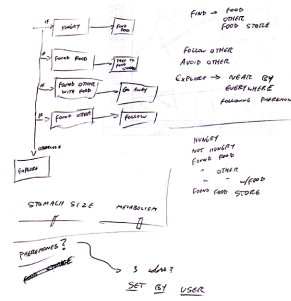 IF
HUNGRY
FIND FOOD
IF
FOUND FOOD
TAKE TO
IF
FOUND OTHER
WITH FOOD
GO AWAY
IF
FOUND OTHER
FOLLOW
OTHERWISE
EXPLORE
FIND → FOOD
OTHER
FOOD STORE
FOLLOW OTHER
AVOID OTHER
EXPLORE → NEAR BY
EVERYWHERE
FOLLOWING PHEREMON
HUNGRY
NOT HUNGRY
FOUND FOOD
" OTHER
" " W/FOOD
FOUND FOOD STORE
STOMACH SIZE
METABOLISM
PHEREMONES?
FOOD STORAGE
3
SET BY USER